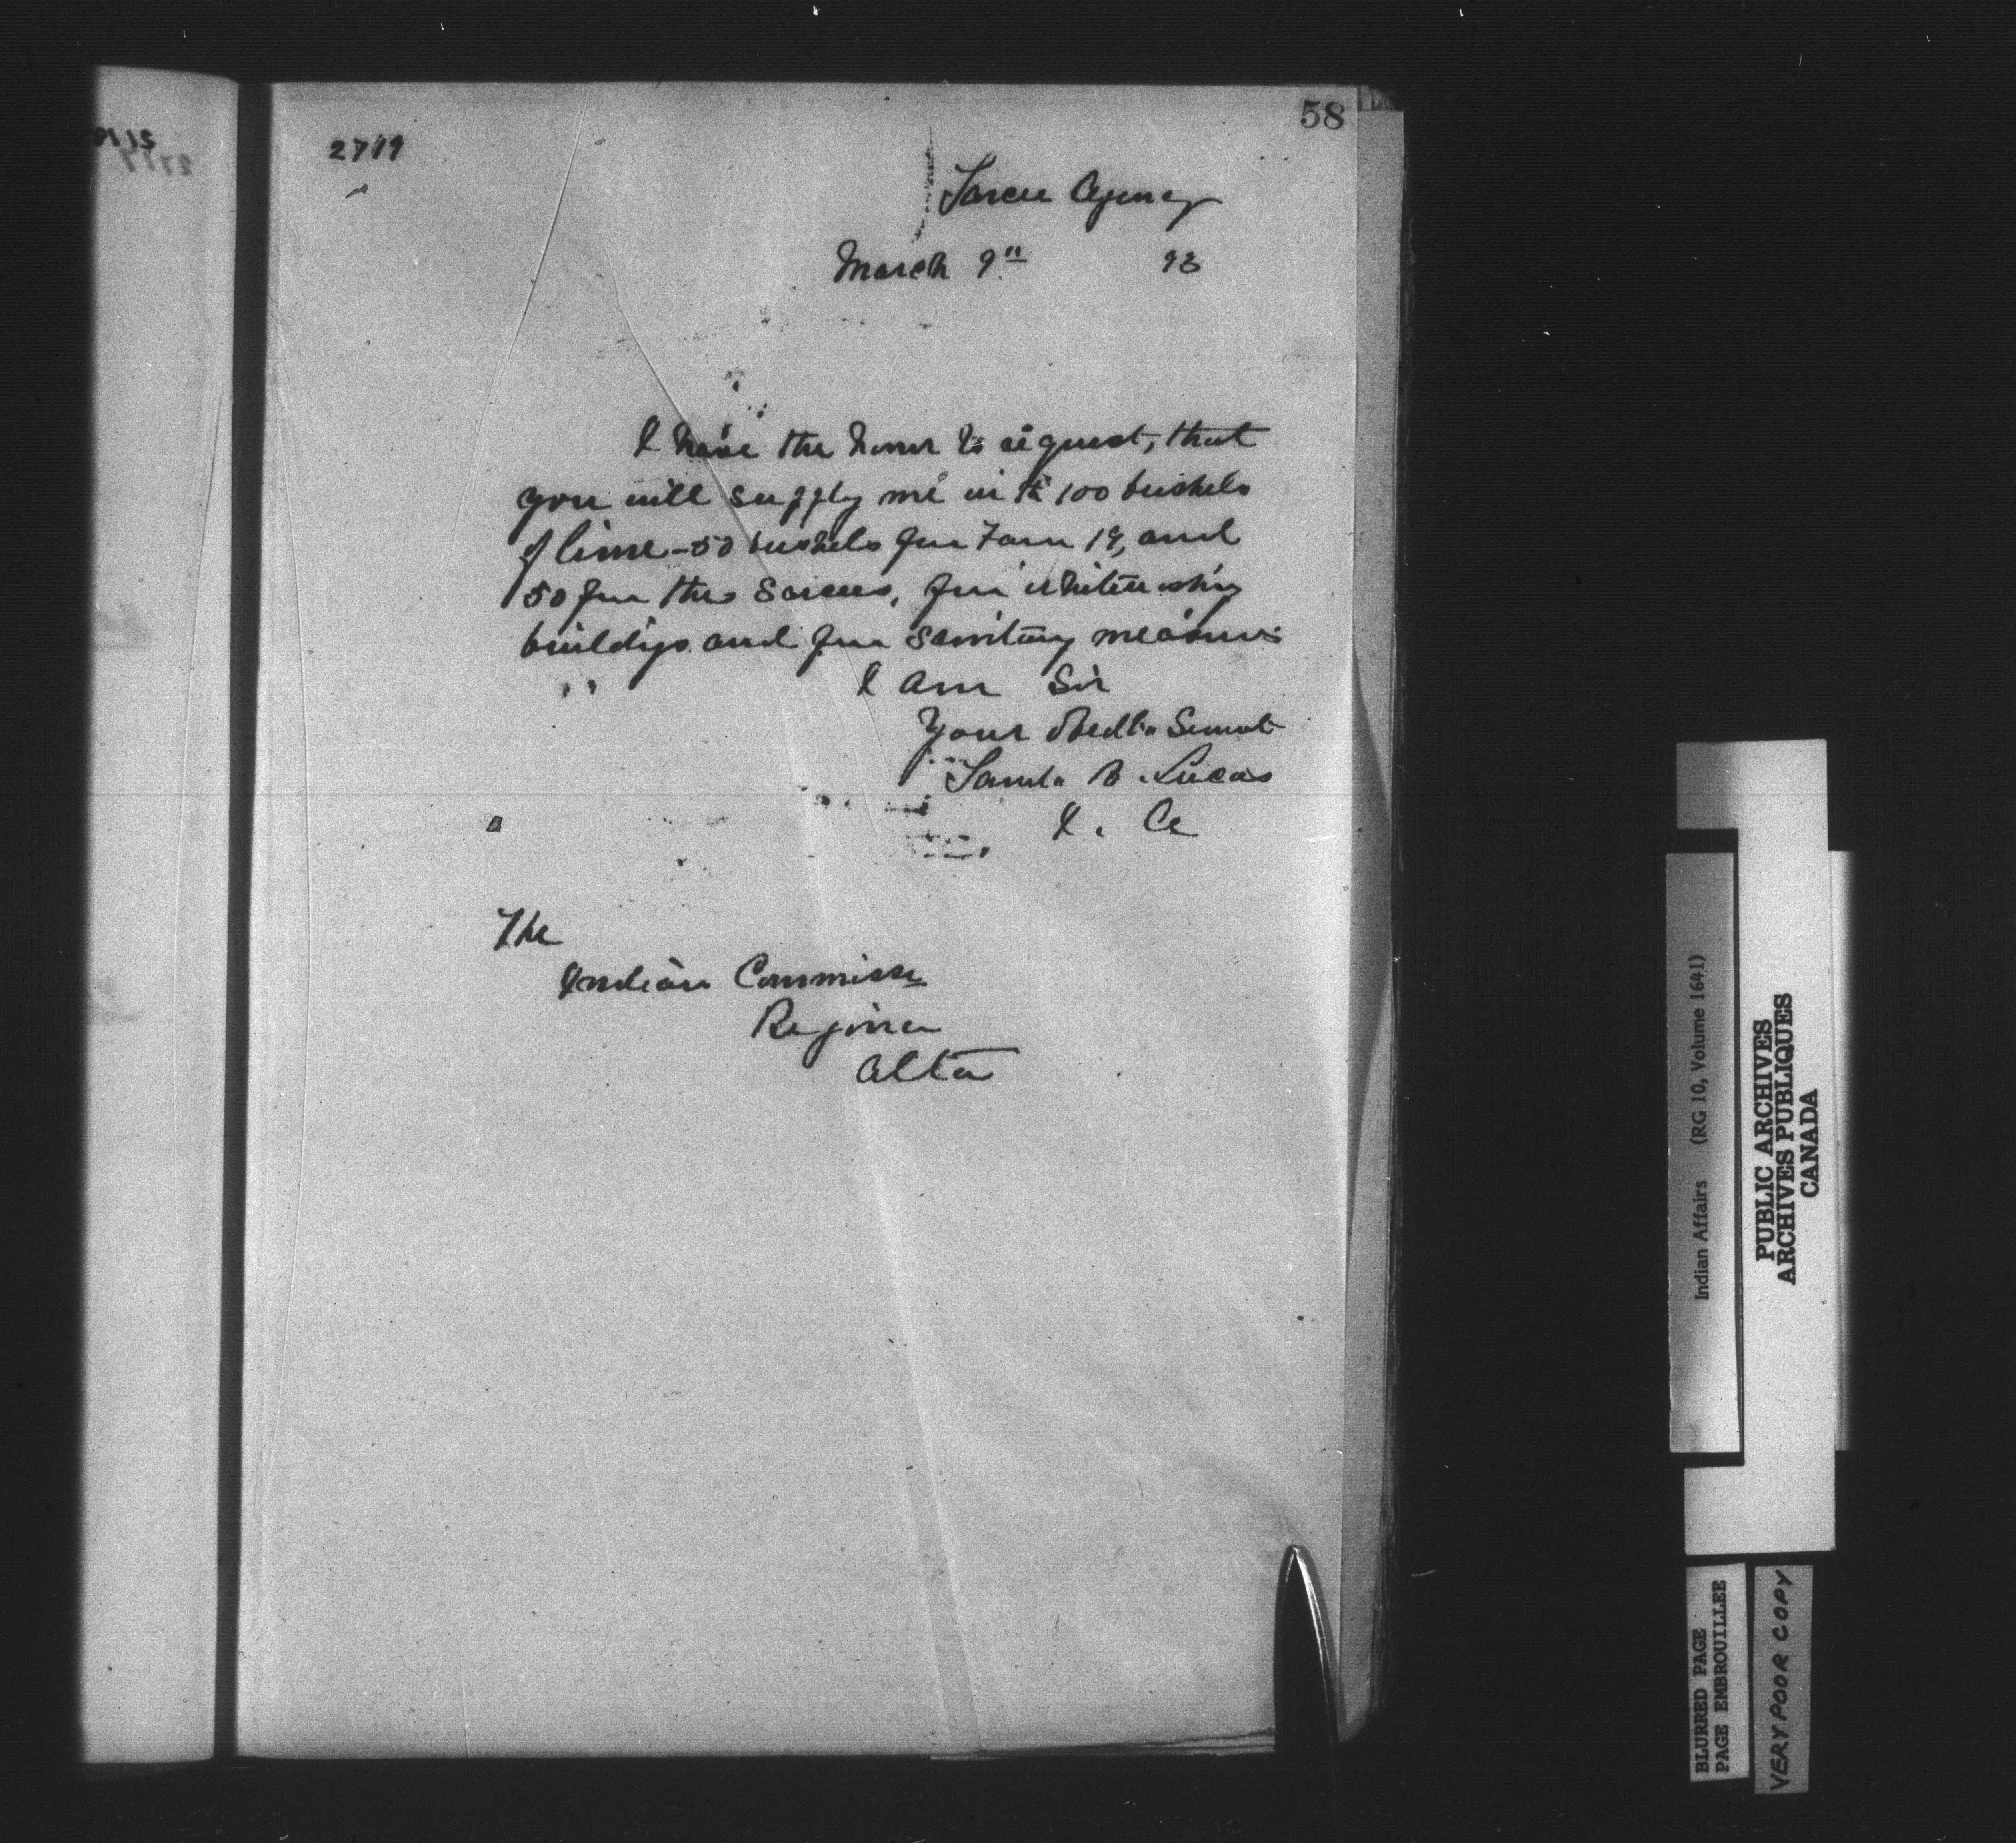 58
2719
Sarcee Agency
March 9" 93
I have the honor to request, that
you will supply me with 100 bushels
of lime - 50 bushels for Farm 19, and
50 for the Sarcees, for whitewashing
buildigs and for sanitary measures
I am Sir
Your Obedt. Servant
Saml. B. Lucas
I. A
The
Indian Commissr
Regina
Alta
Indian Affairs (RG 10, Volume 1641)
PUBLIC ARCHIVES
ARCHIVES PUBLIQUES
CANADA
BLURRED PAGE
PAGE EMBROUILLEE
VERY POOR COPY